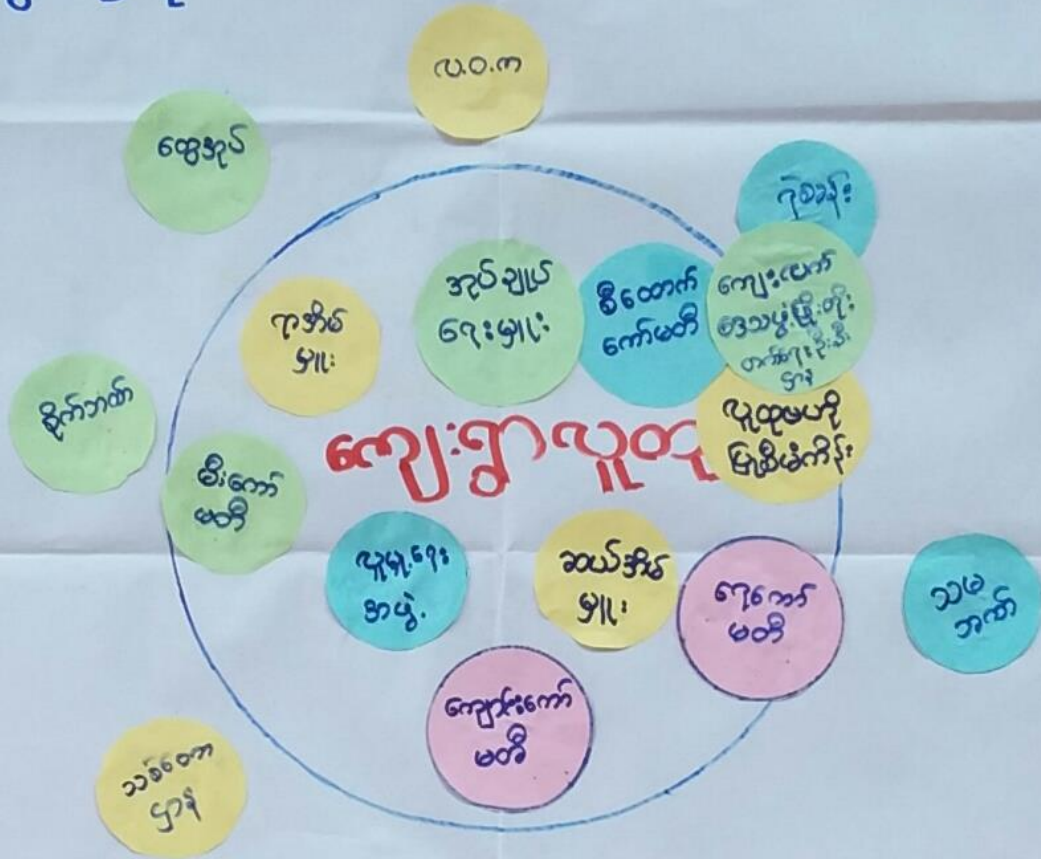 လ.ဝ.က
ထွေအုပ်
ရဲစခန်း
အုပ်ချုပ်
ရေးမှူး
စီထောက်
ကော်မတီ
ကျေးလက်
ဒေသဖွံ့ဖြိုးတိုး
တက်ရေးဦးစီး
ဌာန
ရာအိမ်
မှူး
စိုက်ဘဏ်
မီးကော်
မတီ
ကျေးရွာလူထု
လူထုဗဟို
ပြုစီမံကိန်း
လူမှုရေး
အဖွဲ့
ဆယ်အိမ်
မှူး
ရေကော်
မတီ
သမ
ဘဏ်
ကျောင်းကော်
မတီ
သစ်တော
ဌာန